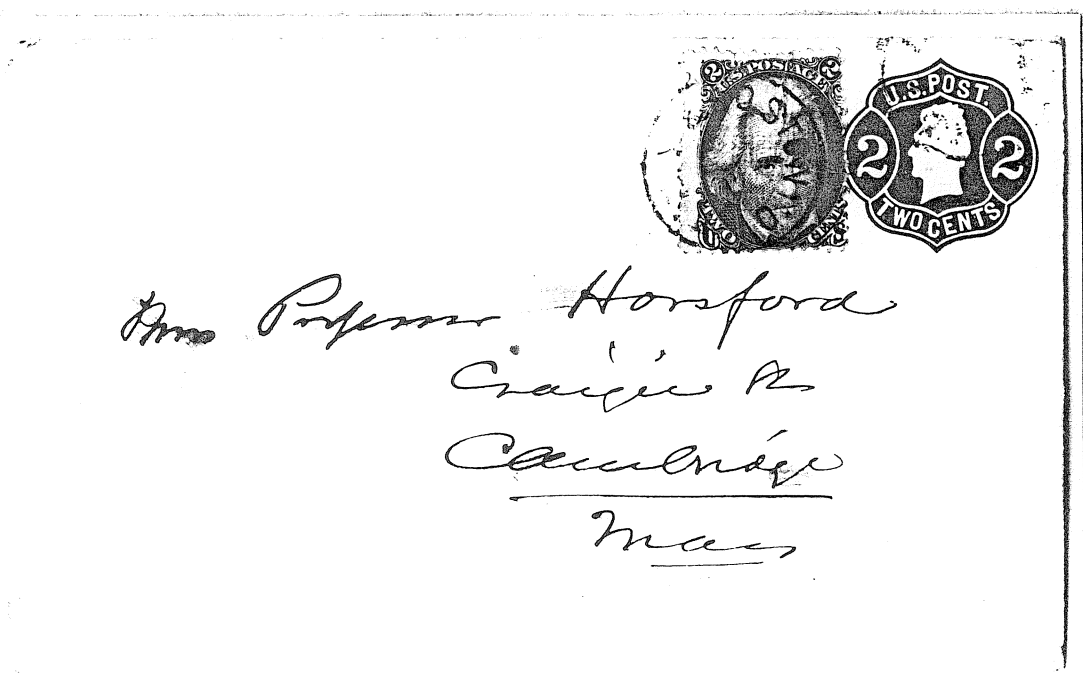 2 U.S. POSTAGE 2
TWO CENTS
U.S. POST.
2 2
TWO CENTS
Mrs Professor Horsford
Craigie St
Cambridge
Mass